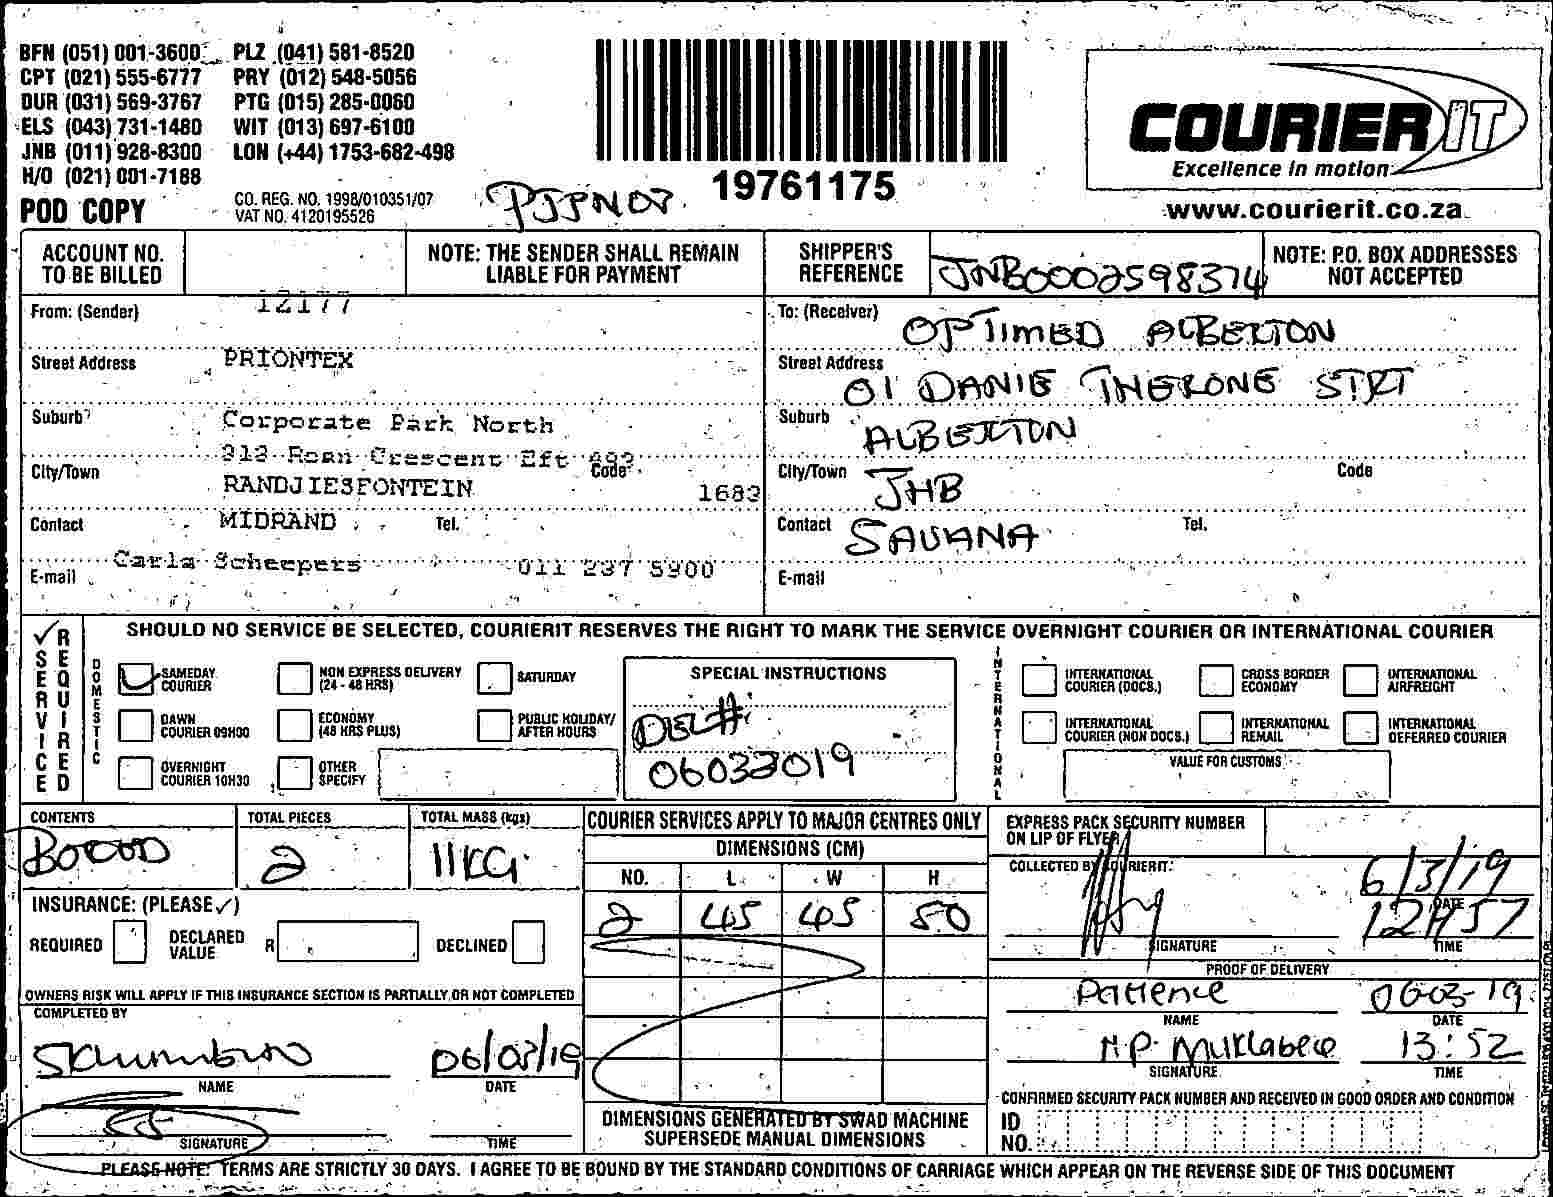 BFN (051) 001-3600 PLZ (041) 581-8520
CPT (021) 555-6777 PRY (012) 548-5056
DUR (031) 569-3767 PTG (015) 285-0060
ELS (043) 731-1480 WIT (013) 697-6100
JNB (011) 928-8300 LON (+44) 1753-682-498
H/O (021) 001-7188
POD COPY
CO. REG. NO. 1998/010351/07
VAT NO. 4120195526
PJPN07
19761175
COURIER IT
Excellence in motion
www.courierit.co.za
ACCOUNT NO. TO BE BILLED
NOTE: THE SENDER SHALL REMAIN LIABLE FOR PAYMENT
SHIPPER'S REFERENCE
JNB0002598374
NOTE: P.O. BOX ADDRESSES NOT ACCEPTED
From: (Sender) 12177
Street Address PRIONTEX
Suburb Corporate Park North
Crescent
City/Town RANDJIESFONTEIN Code 1683
Contact MIDRAND Tel.
Carla Scheepers 011 237 5900
E-mail
To: (Receiver) OPTIMED ALBERTON
Street Address 01 DANIE THERONE STRT
Suburb ALBERTON
City/Town JHB Code
Contact SAVANA Tel.
E-mail
✓ SERVICE REQUIRED
SHOULD NO SERVICE BE SELECTED, COURIERIT RESERVES THE RIGHT TO MARK THE SERVICE OVERNIGHT COURIER OR INTERNATIONAL COURIER
DOMESTIC
SAMEDAY COURIER
NON EXPRESS DELIVERY (24 - 48 HRS)
SATURDAY
DAWN COURIER 09H00
ECONOMY (48 HRS PLUS)
PUBLIC HOLIDAY/ AFTER HOURS
OVERNIGHT COURIER 10H30
OTHER SPECIFY
SPECIAL INSTRUCTIONS
DEL#:
06033019
INTERNATIONAL
INTERNATIONAL COURIER (DOCS.)
CROSS BORDER ECONOMY
INTERNATIONAL AIRFREIGHT
INTERNATIONAL COURIER (NON DOCS.)
INTERNATIONAL REMAIL
INTERNATIONAL DEFERRED COURIER
VALUE FOR CUSTOMS
CONTENTS
TOTAL PIECES 2
TOTAL MASS (kgs) 11KG
INSURANCE: (PLEASE ✓)
REQUIRED
DECLARED VALUE R
DECLINED
OWNERS RISK WILL APPLY IF THIS INSURANCE SECTION IS PARTIALLY OR NOT COMPLETED
COMPLETED BY
06/03/19
NAME DATE
SIGNATURE TIME
COURIER SERVICES APPLY TO MAJOR CENTRES ONLY
DIMENSIONS (CM)
NO. L W H
2 45 405 50
DIMENSIONS GENERATED BY SWAD MACHINE SUPERSEDE MANUAL DIMENSIONS
EXPRESS PACK SECURITY NUMBER ON LIP OF FLYER
COLLECTED BY COURIERIT:
6/3/19
DATE
12H57
SIGNATURE TIME
PROOF OF DELIVERY
Patience 06-03-19
NAME DATE
13:52
SIGNATURE TIME
CONFIRMED SECURITY PACK NUMBER AND RECEIVED IN GOOD ORDER AND CONDITION
ID NO.
PLEASE NOTE: TERMS ARE STRICTLY 30 DAYS. I AGREE TO BE BOUND BY THE STANDARD CONDITIONS OF CARRIAGE WHICH APPEAR ON THE REVERSE SIDE OF THIS DOCUMENT